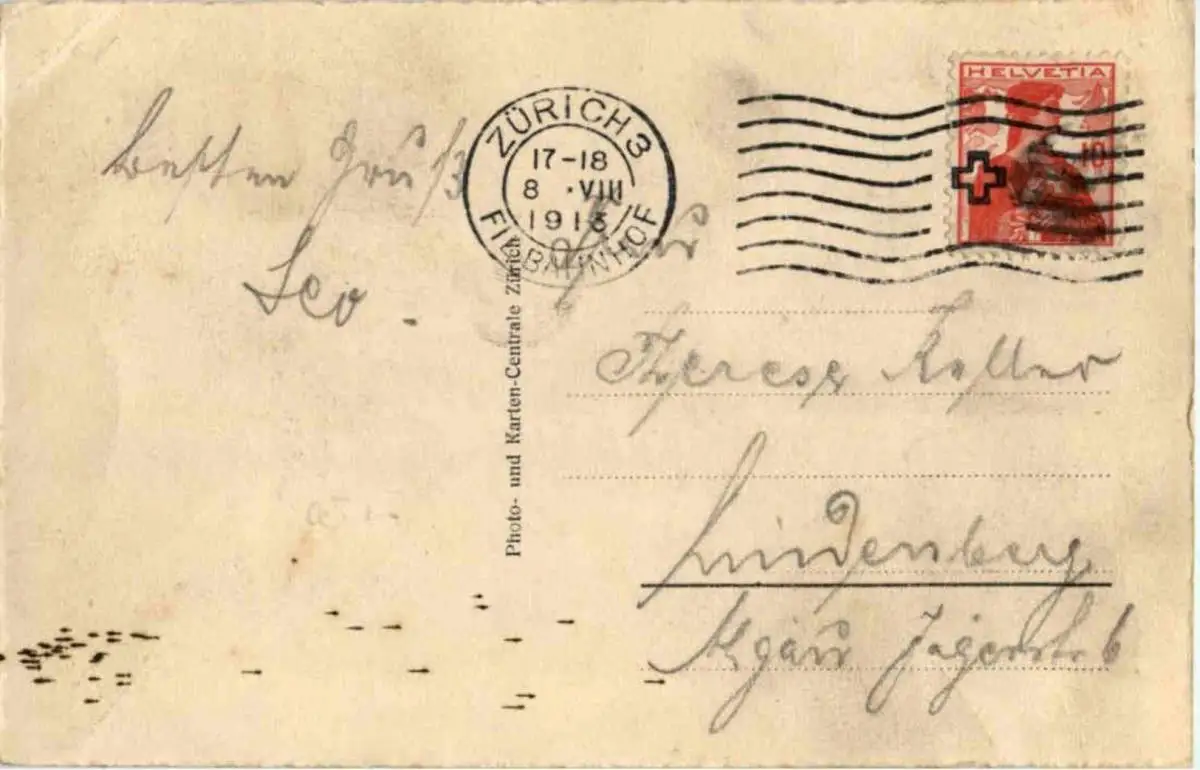 Besten Gruß
Leo.
ZÜRICH 3
17-18
8 · VIII
1913
FIL. BAHNHOF
HELVETIA
10
Photo- und Karten-Centrale Zürich
Therese
Lindenberg
Jägerstr. 6